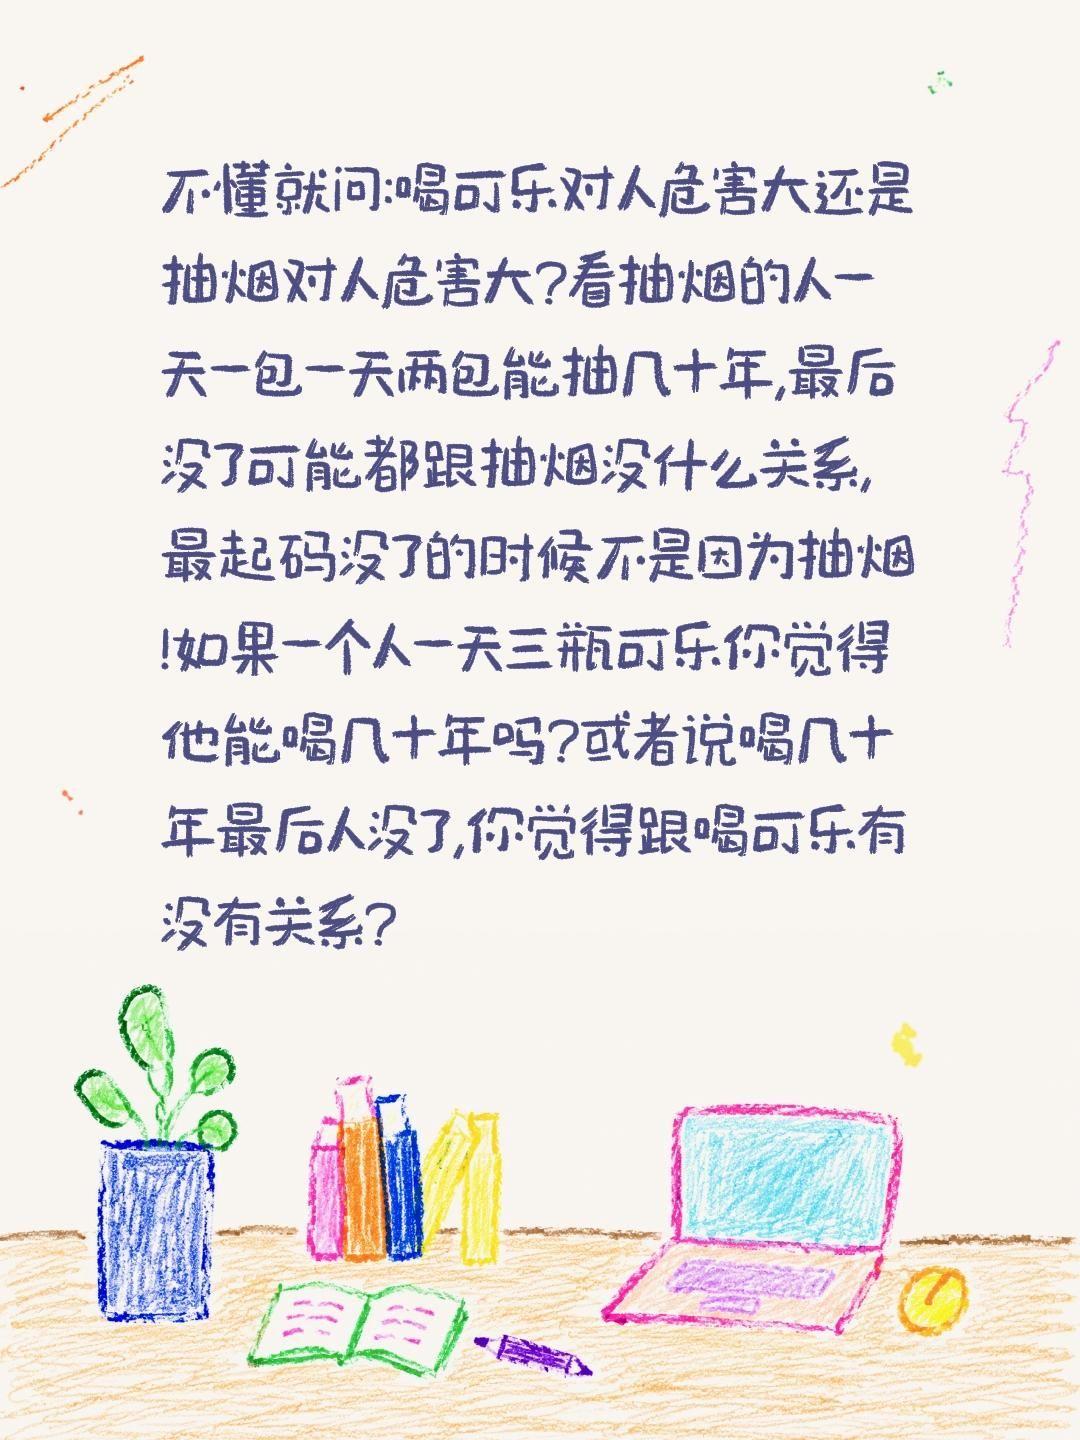 不懂就问:喝可乐对人危害大还是
抽烟对人危害大?看抽烟的人一
天一包一天两包能抽几十年,最后
没了可能都跟抽烟没什么关系,
最起码没了的时候不是因为抽烟
!如果一个人一天三瓶可乐你觉得
他能喝几十年吗?或者说喝几十
年最后人没了,你觉得跟喝可乐有
没有关系?